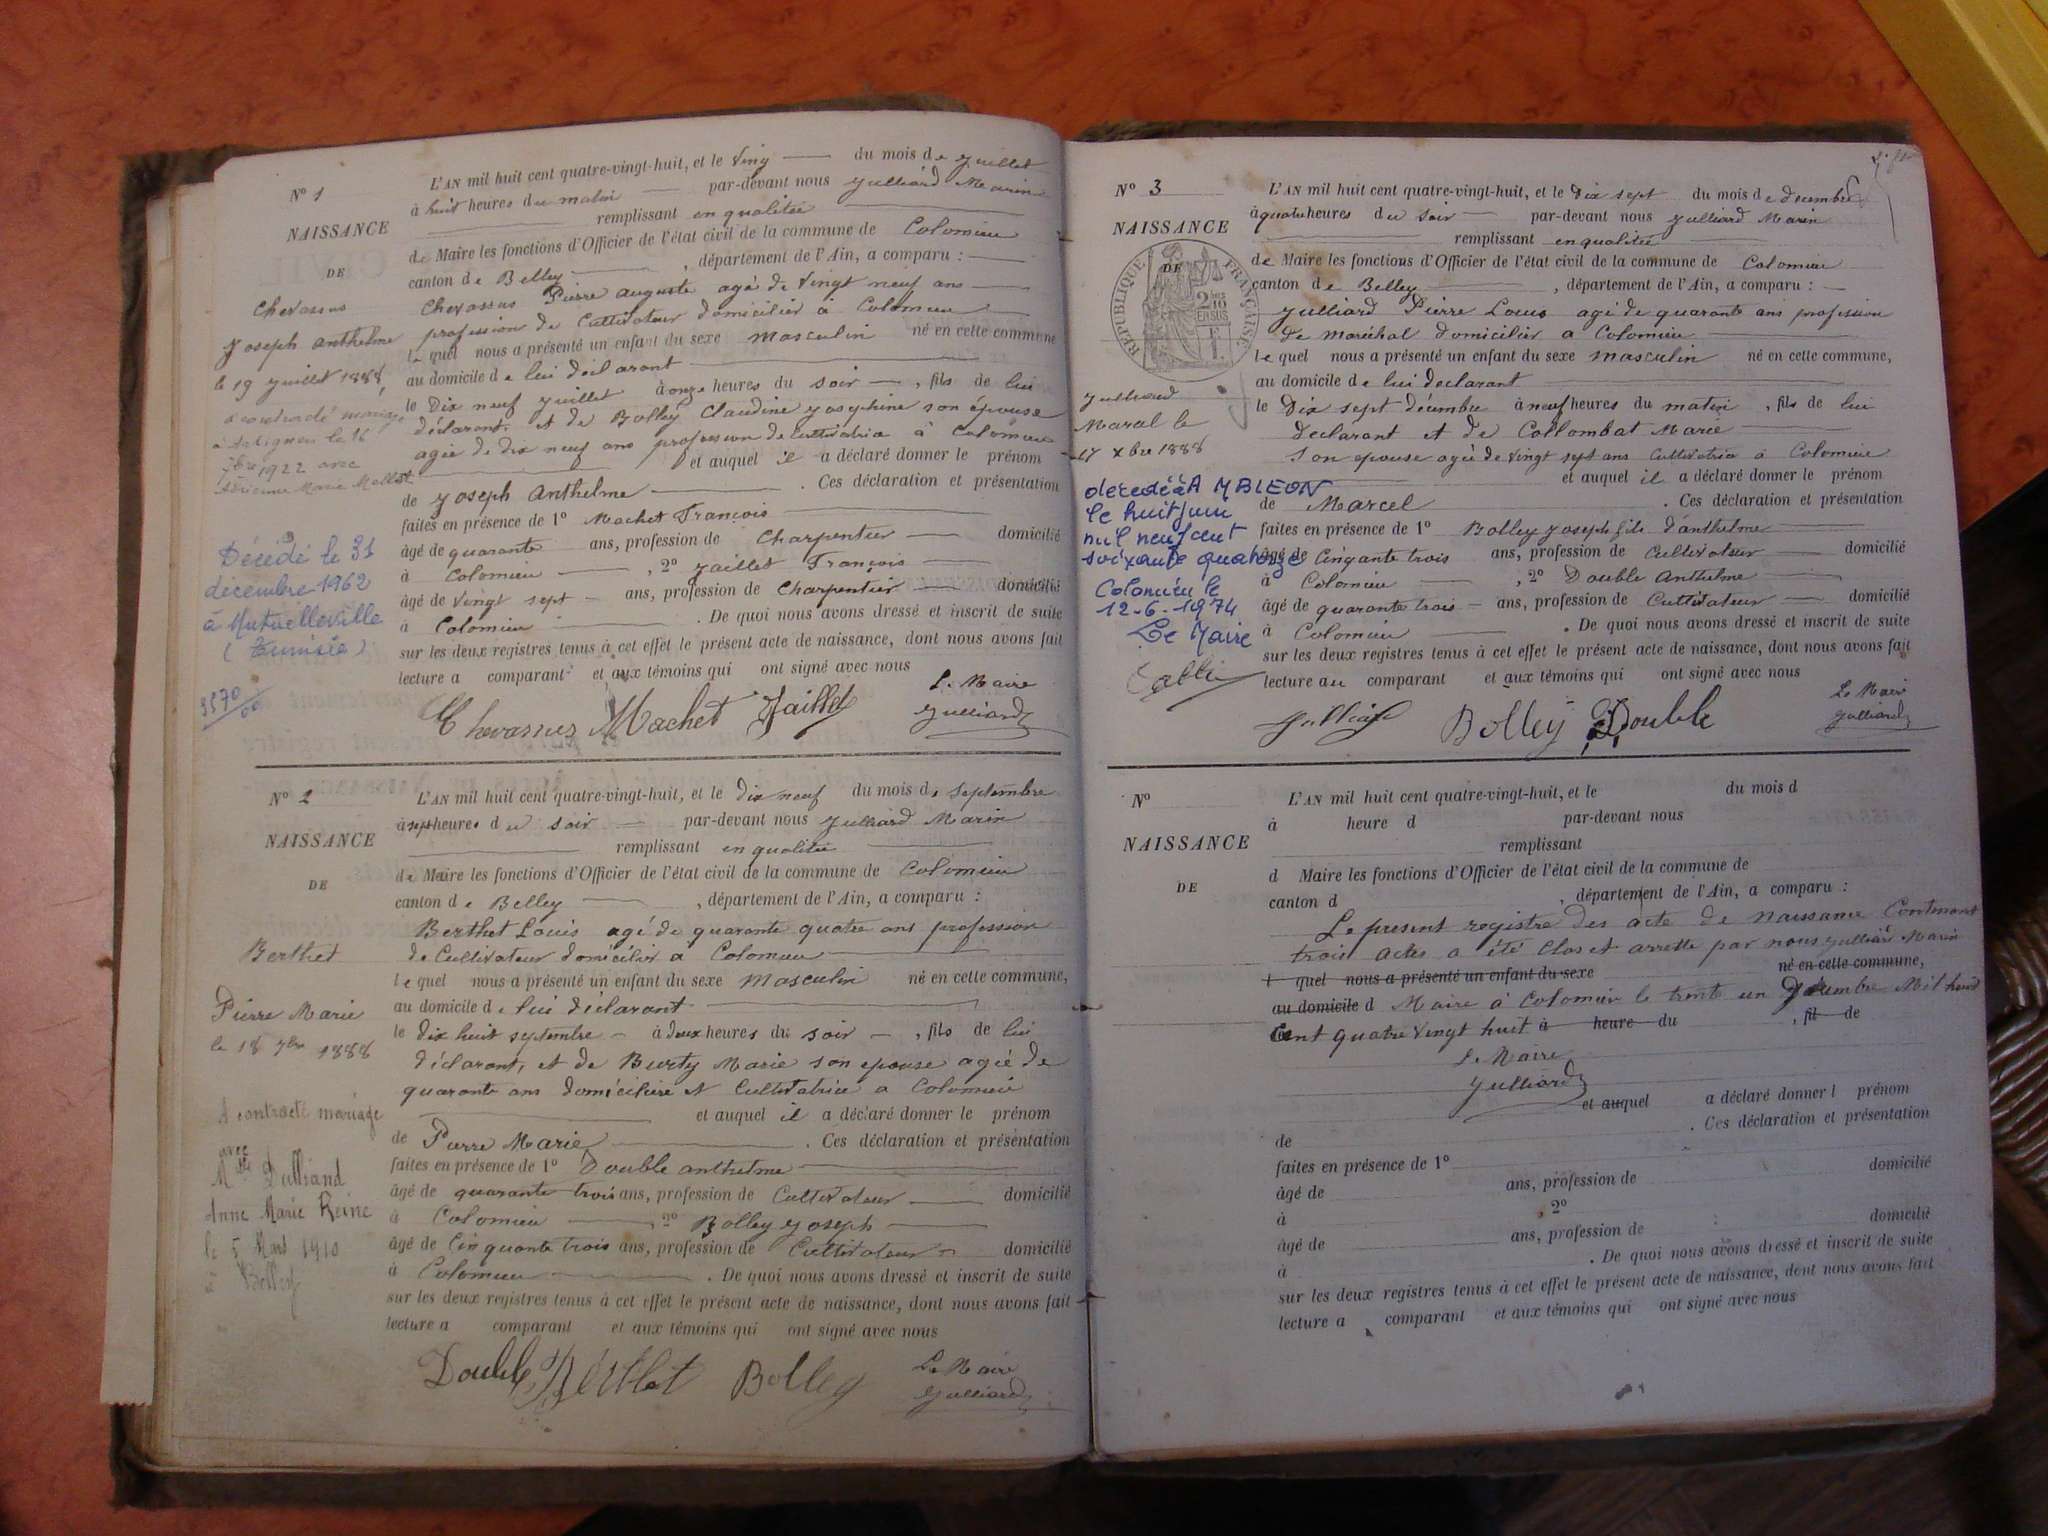 N° 1
NAISSANCE
DE
Chevassus
Joseph Anthelme
le 19 Juillet 1888
a contracté mariage
à le 16
7bre 1922 avec
Marie
Décédé le 31
décembre 1962
à Mutuelleville
(Tunisie)
L'AN mil huit cent quatre-vingt-huit, et le Ving du mois de Juillet
à huit heures du matin par-devant nous Julliard Marin
remplissant en qualitée
de Maire les fonctions d'Officier de l'état civil de la commune de Colomieu
canton de Belley , département de l'Ain, a comparu :
Chevassus Pierre Auguste agé de Vingt neuf ans
profession de Cultivateur domicilier à Colomieu
le quel nous a présenté un enfant du sexe masculin né en cette commune
au domicile de lui déclarant
le Dix neuf Juillet à onze heures du soir , fils de lui
déclarant, et de Bolley Claudine Josephine son épouse
agée de dix neuf ans profession de Cultivatrice à Colomieu
et auquel il a déclaré donner le prénom
de Joseph Anthelme . Ces déclaration et présentation
faites en présence de 1° Machet François
âgé de quarante ans, profession de Charpentier domicilié
à Colomieu , 2° Jaillet François
âgé de Vingt sept ans, profession de Charpentier domicilié
à Colomieu . De quoi nous avons dressé et inscrit de suite
sur les deux registres tenus à cet effet le présent acte de naissance, dont nous avons fait
lecture a comparant et aux témoins qui ont signé avec nous
Chevassus Machet Jaillet
Le Maire
Julliard
N° 2
NAISSANCE
DE
Berthet
Pierre Marie
le 18 7bre 1888
A contracté mariage
avec
Mlle Dulliand
Anne Marie Reine
le 5 Mars 1910
à Belley
L'AN mil huit cent quatre-vingt-huit, et le Dix neuf du mois de Septembre
à sept heures du soir par-devant nous Julliard Marin
remplissant en qualitée
de Maire les fonctions d'Officier de l'état civil de la commune de Colomieu
canton de Belley , département de l'Ain, a comparu :
Berthet Louis agé de quarante quatre ans profession
de Cultivateur domicilier a Colomieu
le quel nous a présenté un enfant du sexe Masculin né en cette commune,
au domicile de lui déclarant
le dix huit septembre à deux heures du soir , fils de lui
déclarant, et de Burty Marie son epouse agée de
quarante ans domicilière et Cultivatrice a Colomieu
et auquel il a déclaré donner le prénom
de Pierre Marie . Ces déclaration et présentation
faites en présence de 1° Double anthelme
âgé de quarante trois ans, profession de Cultivateur domicilié
à Colomieu , 2° Bolley Joseph
âgé de Cinquante trois ans, profession de Cultivateur domicilié
à Colomieu . De quoi nous avons dressé et inscrit de suite
sur les deux registres tenus à cet effet le présent acte de naissance, dont nous avons fait
lecture a comparant et aux témoins qui ont signé avec nous
Double Berthet Bolley
Le Maire
Julliard
N° 3
NAISSANCE
DE
RÉPUBLIQUE FRANÇAISE
Julliard
Marcel le
17 Xbre 1888
decedé à AMBLEON
le huit juin
mil neuf cent
soixante quatorze
Colomieu le
12-6-1974
Le Maire
L'AN mil huit cent quatre-vingt-huit, et le Dix sept du mois de decembre
à quatre heures du soir par-devant nous Julliard Marin
remplissant en qualitée
de Maire les fonctions d'Officier de l'état civil de la commune de Colomieu
canton de Belley , département de l'Ain, a comparu :
Julliard Pierre Louis agé de quarante ans profession
de maréchal domicilier a Colomieu
le quel nous a présenté un enfant du sexe masculin né en cette commune,
au domicile de lui declarant
le Dix sept décembre à neuf heures du matin , fils de lui
Declarant et de Collombat Marie
son epouse agée de vingt sept ans Cultivatrice a Colomieu
et auquel il a déclaré donner le prénom
de Marcel . Ces déclaration et présentation
faites en présence de 1° Bolley Joseph fils d'anthelme
âgé de Cinquante trois ans, profession de Cultivateur domicilié
à Colomieu , 2° Double Anthelme
âgé de quarante trois ans, profession de Cultivateur domicilié
à Colomieu . De quoi nous avons dressé et inscrit de suite
sur les deux registres tenus à cet effet le présent acte de naissance, dont nous avons fait
lecture au comparant et aux témoins qui ont signé avec nous
Julliard Bolley Double
Le Maire
Julliard
N°
NAISSANCE
DE
L'AN mil huit cent quatre-vingt-huit, et le du mois d
à heure d par-devant nous
remplissant
d Maire les fonctions d'Officier de l'état civil de la commune de
canton d , département de l'Ain, a comparu :
Le present registre des acte de naissance Contenant
trois actes a été Clos et arrette par nous Julliard Marin
l quel nous a présenté un enfant du sexe né en cette commune,
au domicile d Maire à Colomieu le trente un Decembre Mil huit
Cent quatre vingt huit à heure du , fil de
Le Maire
Julliard
et auquel a déclaré donner l prénom
de . Ces déclaration et présentation
faites en présence de 1°
âgé de ans, profession de domicilié
à , 2°
âgé de ans, profession de domicilié
à . De quoi nous avons dressé et inscrit de suite
sur les deux registres tenus à cet effet le présent acte de naissance, dont nous avons fait
lecture a comparant et aux témoins qui ont signé avec nous